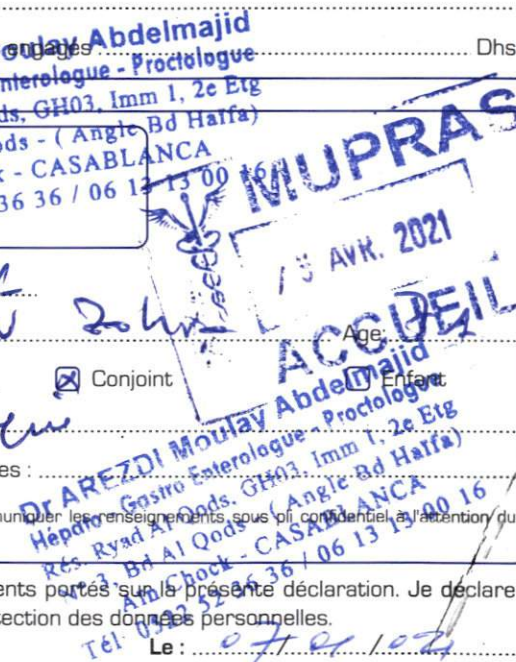 engagés Moulay Abdelmajid Dhs
Enterologue - Proctologue
ds, GH03, Imm 1, 2e Etg
ods - ( Angle Bd Haffa)
k - CASABLANCA
36 36 / 06 13 13 00 16
MUPRAS
AVR. 2021
ACCUEIL
Zohra
Age:
Conjoint
Enfant
Dr AREZDI Moulay Abdelmajid
Hépato - Gastro Enterologue - Proctologue
Rés. Ryad Al Qods, GH03, Imm 1, 2e Etg
N° 3, Bd Al Qods - ( Angle Bd Haffa)
Ain Chock - CASABLANCA
Tél 0522 52 36 36 / 06 13 13 00 16
es :
muniquer les renseignements sous pli confidentiel à l'attention du
ents portés sur la présente déclaration. Je déclare
tection des données personnelles.
Le :